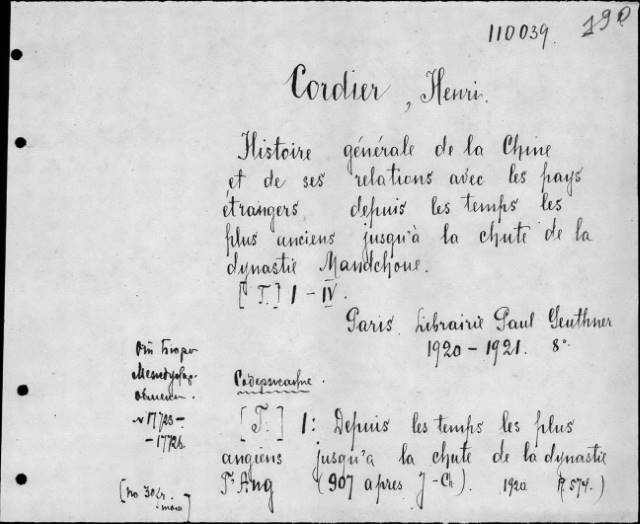 110039.
190
Cordier, Henri.
Histoire générale de la Chine
et de ses relations avec les pays
étrangers depuis les temps les
plus anciens jusqu'à la chute de la
dynastie Mandchoue.
[T.] I - IV.
Paris Librairie Paul Geuthner
1920 - 1921. 8°.
От Бюро
Междунар.
обмена.
17723 -
- 1772
Содержание.
[T.] I: Depuis les temps les plus
angiens jusqu'à la chute de la dynastie
T'Ang (907 apres J-Ch). 1920 574.)